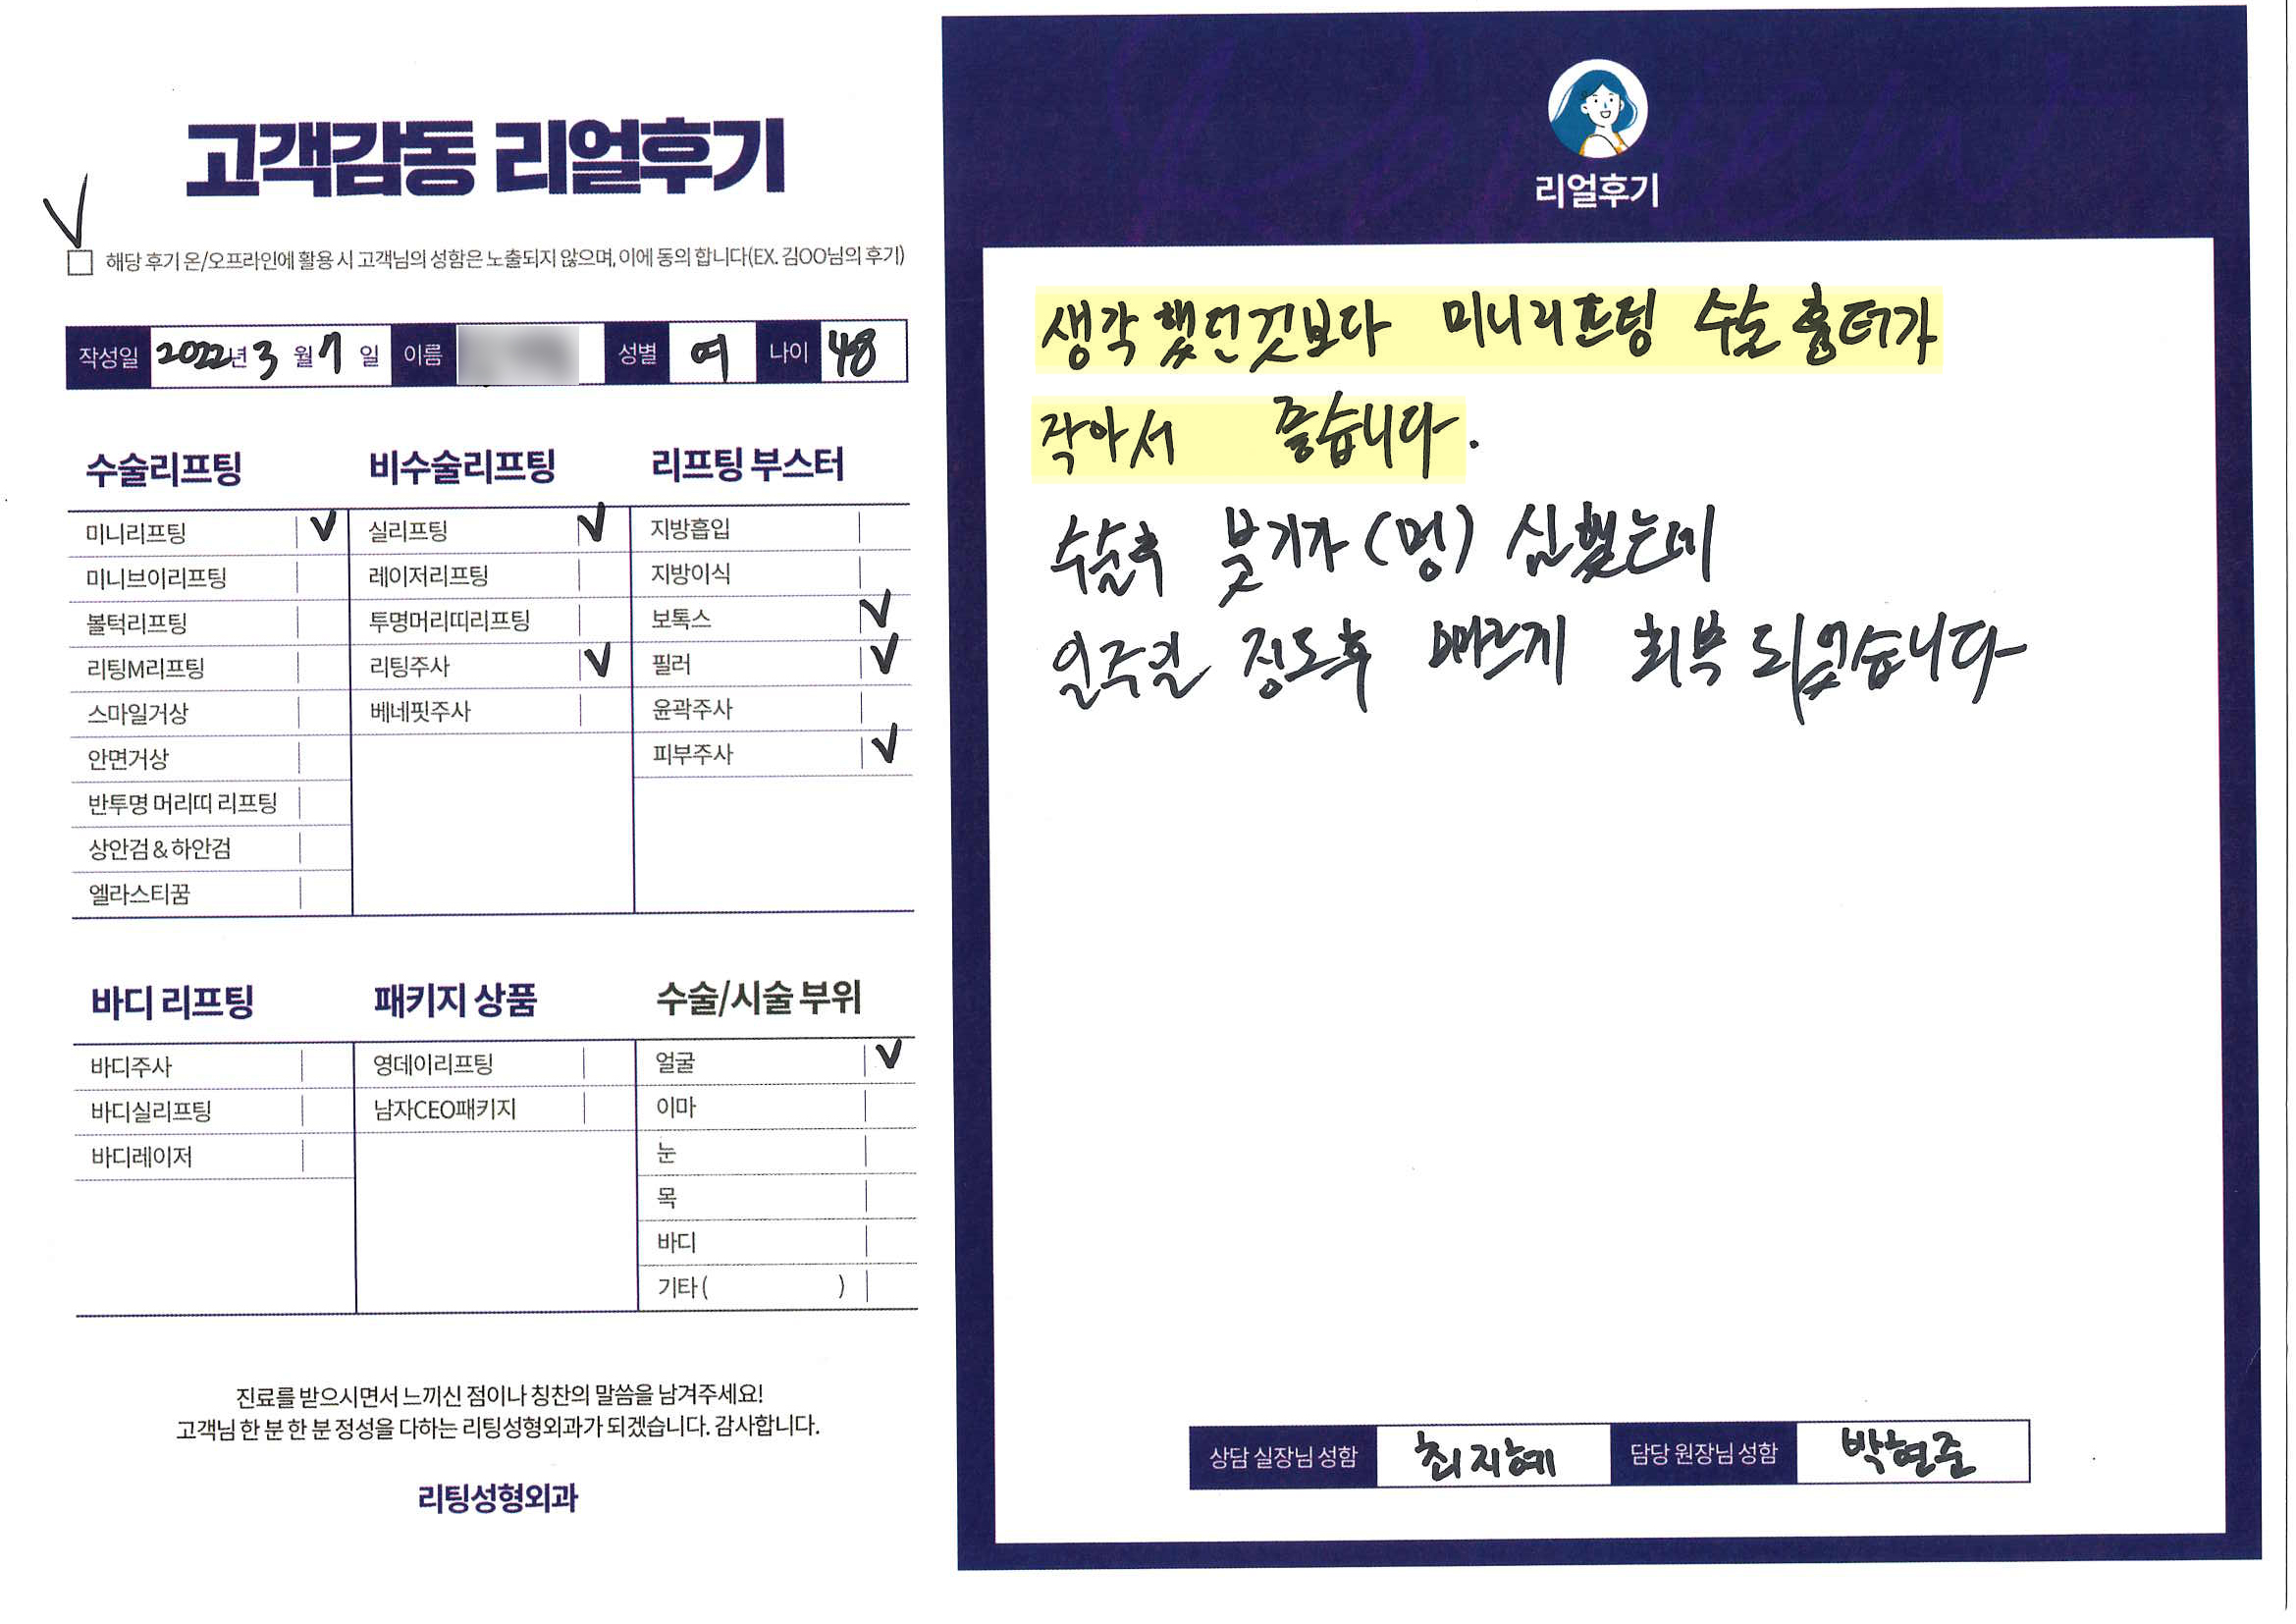 고객감동 리얼후기
해당 후기 온/오프라인에 활용 시 고객님의 성함은 노출되지 않으며, 이에 동의 합니다(EX. 김OO님의 후기)
작성일 2022년 3 월 7 일 이름 성별 여 나이 48
수술리프팅 비수술리프팅 리프팅 부스터
미니리프팅 V 실리프팅 V 지방흡입
미니브이리프팅 레이저리프팅 지방이식
볼턱리프팅 투명머리띠리프팅 보톡스 V
리팅M리프팅 리팅주사 V 필러 V
스마일거상 베네핏주사 윤곽주사
안면거상 피부주사 V
반투명 머리띠 리프팅
상안검 & 하안검
엘라스티꿈
바디 리프팅 패키지 상품 수술/시술 부위
바디주사 영데이리프팅 얼굴 V
바디실리프팅 남자CEO패키지 이마
바디레이저 눈
목
바디
기타 ( )
진료를 받으시면서 느끼신 점이나 칭찬의 말씀을 남겨주세요!
고객님 한 분 한 분 정성을 다하는 리팅성형외과가 되겠습니다. 감사합니다.
리팅성형외과
리얼후기
생각했던것보다 미니리프팅 수술 흉터가
작아서 좋습니다.
수술후 붓기가 (멍) 심했는데
일주일 정도후 빠르게 회복 되었습니다
상담 실장님 성함 최지혜 담당 원장님 성함 박현준